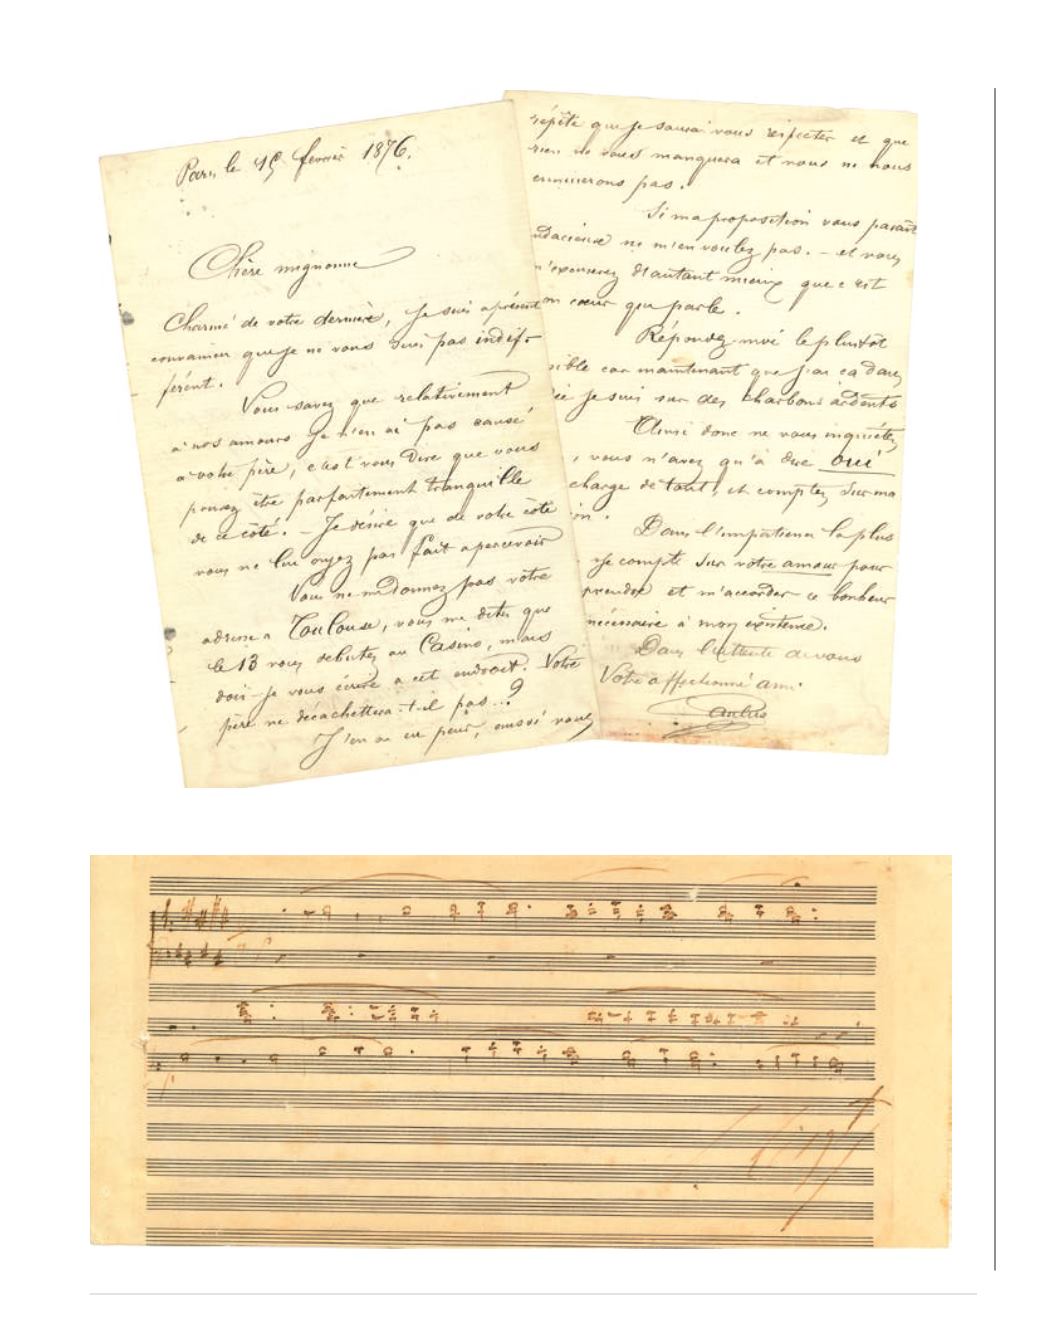 Paris le 15 février 1876.
Chère mignonne
Charmé de votre dernière, je suis àprésent
convaincu que je ne vous suis pas indif-
férent.
Vous savez que relativement
à nos amours je n'en ai pas causé
a votre père, c'est vous dire que vous
pouvez être parfaitement tranquille
de ce côté. – Je désire que de votre côté
vous ne lui ayez pas fait apercevoir
Vous ne me donnez pas votre
adresse a Toulouse, vous me dites que
le 13 vous débutez au Casino, mais
dois-je vous écrire a cet endroit. Votre
père ne décachettera-t-il pas...?
J'en ai eu peur, aussi vous
répète que je saurai vous respecter et que
rien ne vous manquera et nous ne nous
ennuierons pas.
Si ma proposition vous parait
audacieuse ne m'en voulez pas. – et vous
m'excuserez d'autant mieux que c'est
mon cœur qui parle.
Répondez-moi le plutot
sible car maintenant que j'ai ça dans
je suis sur des charbons ardents
Ainsi donc ne vous inquiétez
, vous n'avez qu'à dire oui
charge de tout, et comptez sur ma
ion.
Dans l'impatience la plus
je compte sur votre amour pour
prendre et m'accorder ce bonheur
nécessaire à mon existence.
Dans l'attente de vous
Votre affectionné ami
Paulus